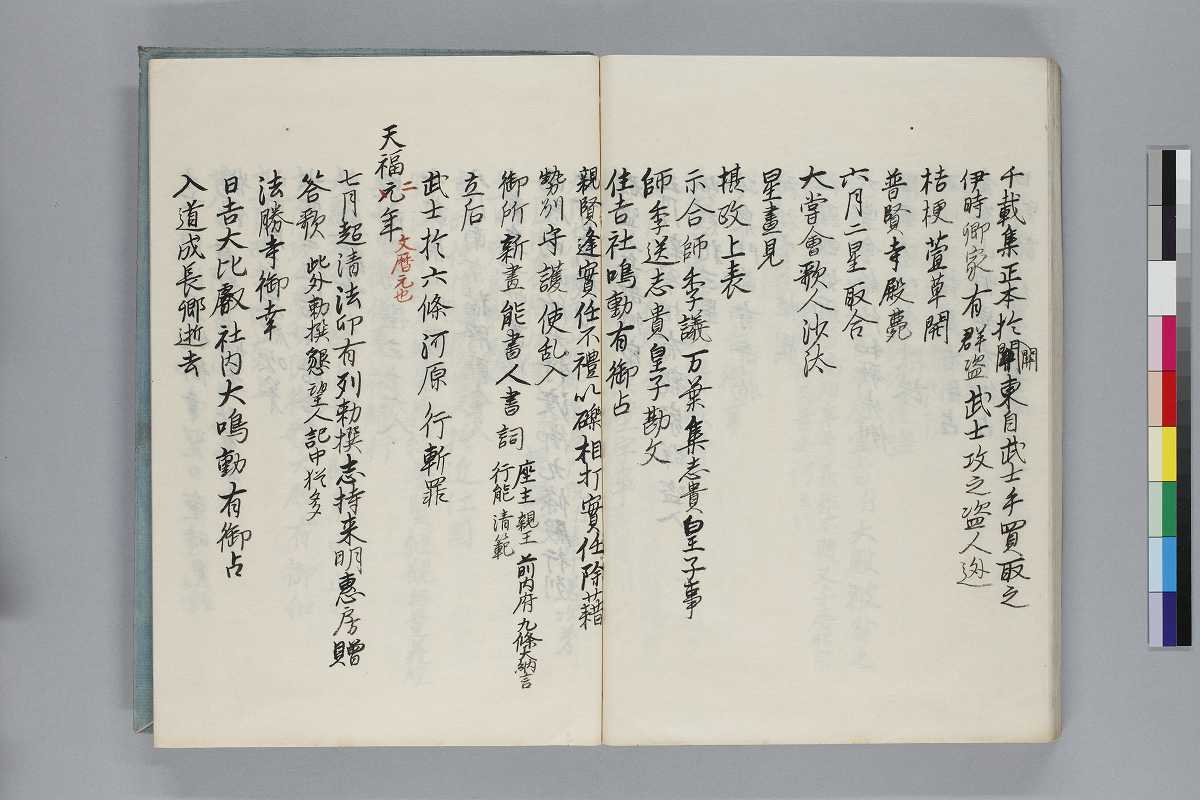 千載集正本於関東自武士手買取之
関
伊時卿家有群盗武士攻之盗人迯
桔梗 萱草開
普賢寺殿薨
六月二星取合
大嘗會歌人沙汰
星晝見
摂政上表
示合師季議万葉集志貴皇子事
師季送志貴皇子勘文
住吉社鳴動有御占
親賢逢實任不禮以礫相打實任除藉
勢州守護使乱入
御所新畫能書人書詞 座主親王 前内府 九條大納言
行能 清範
立后
武士於六條河原行斬罪
天福元年
二
文暦元也
七月超清法印有列勅撰志持来明恵房贈
答歌 此外勅撰懇望人記中猶多
法勝寺御幸
日吉大比叡社内大鳴動有御占
入道成長卿逝去